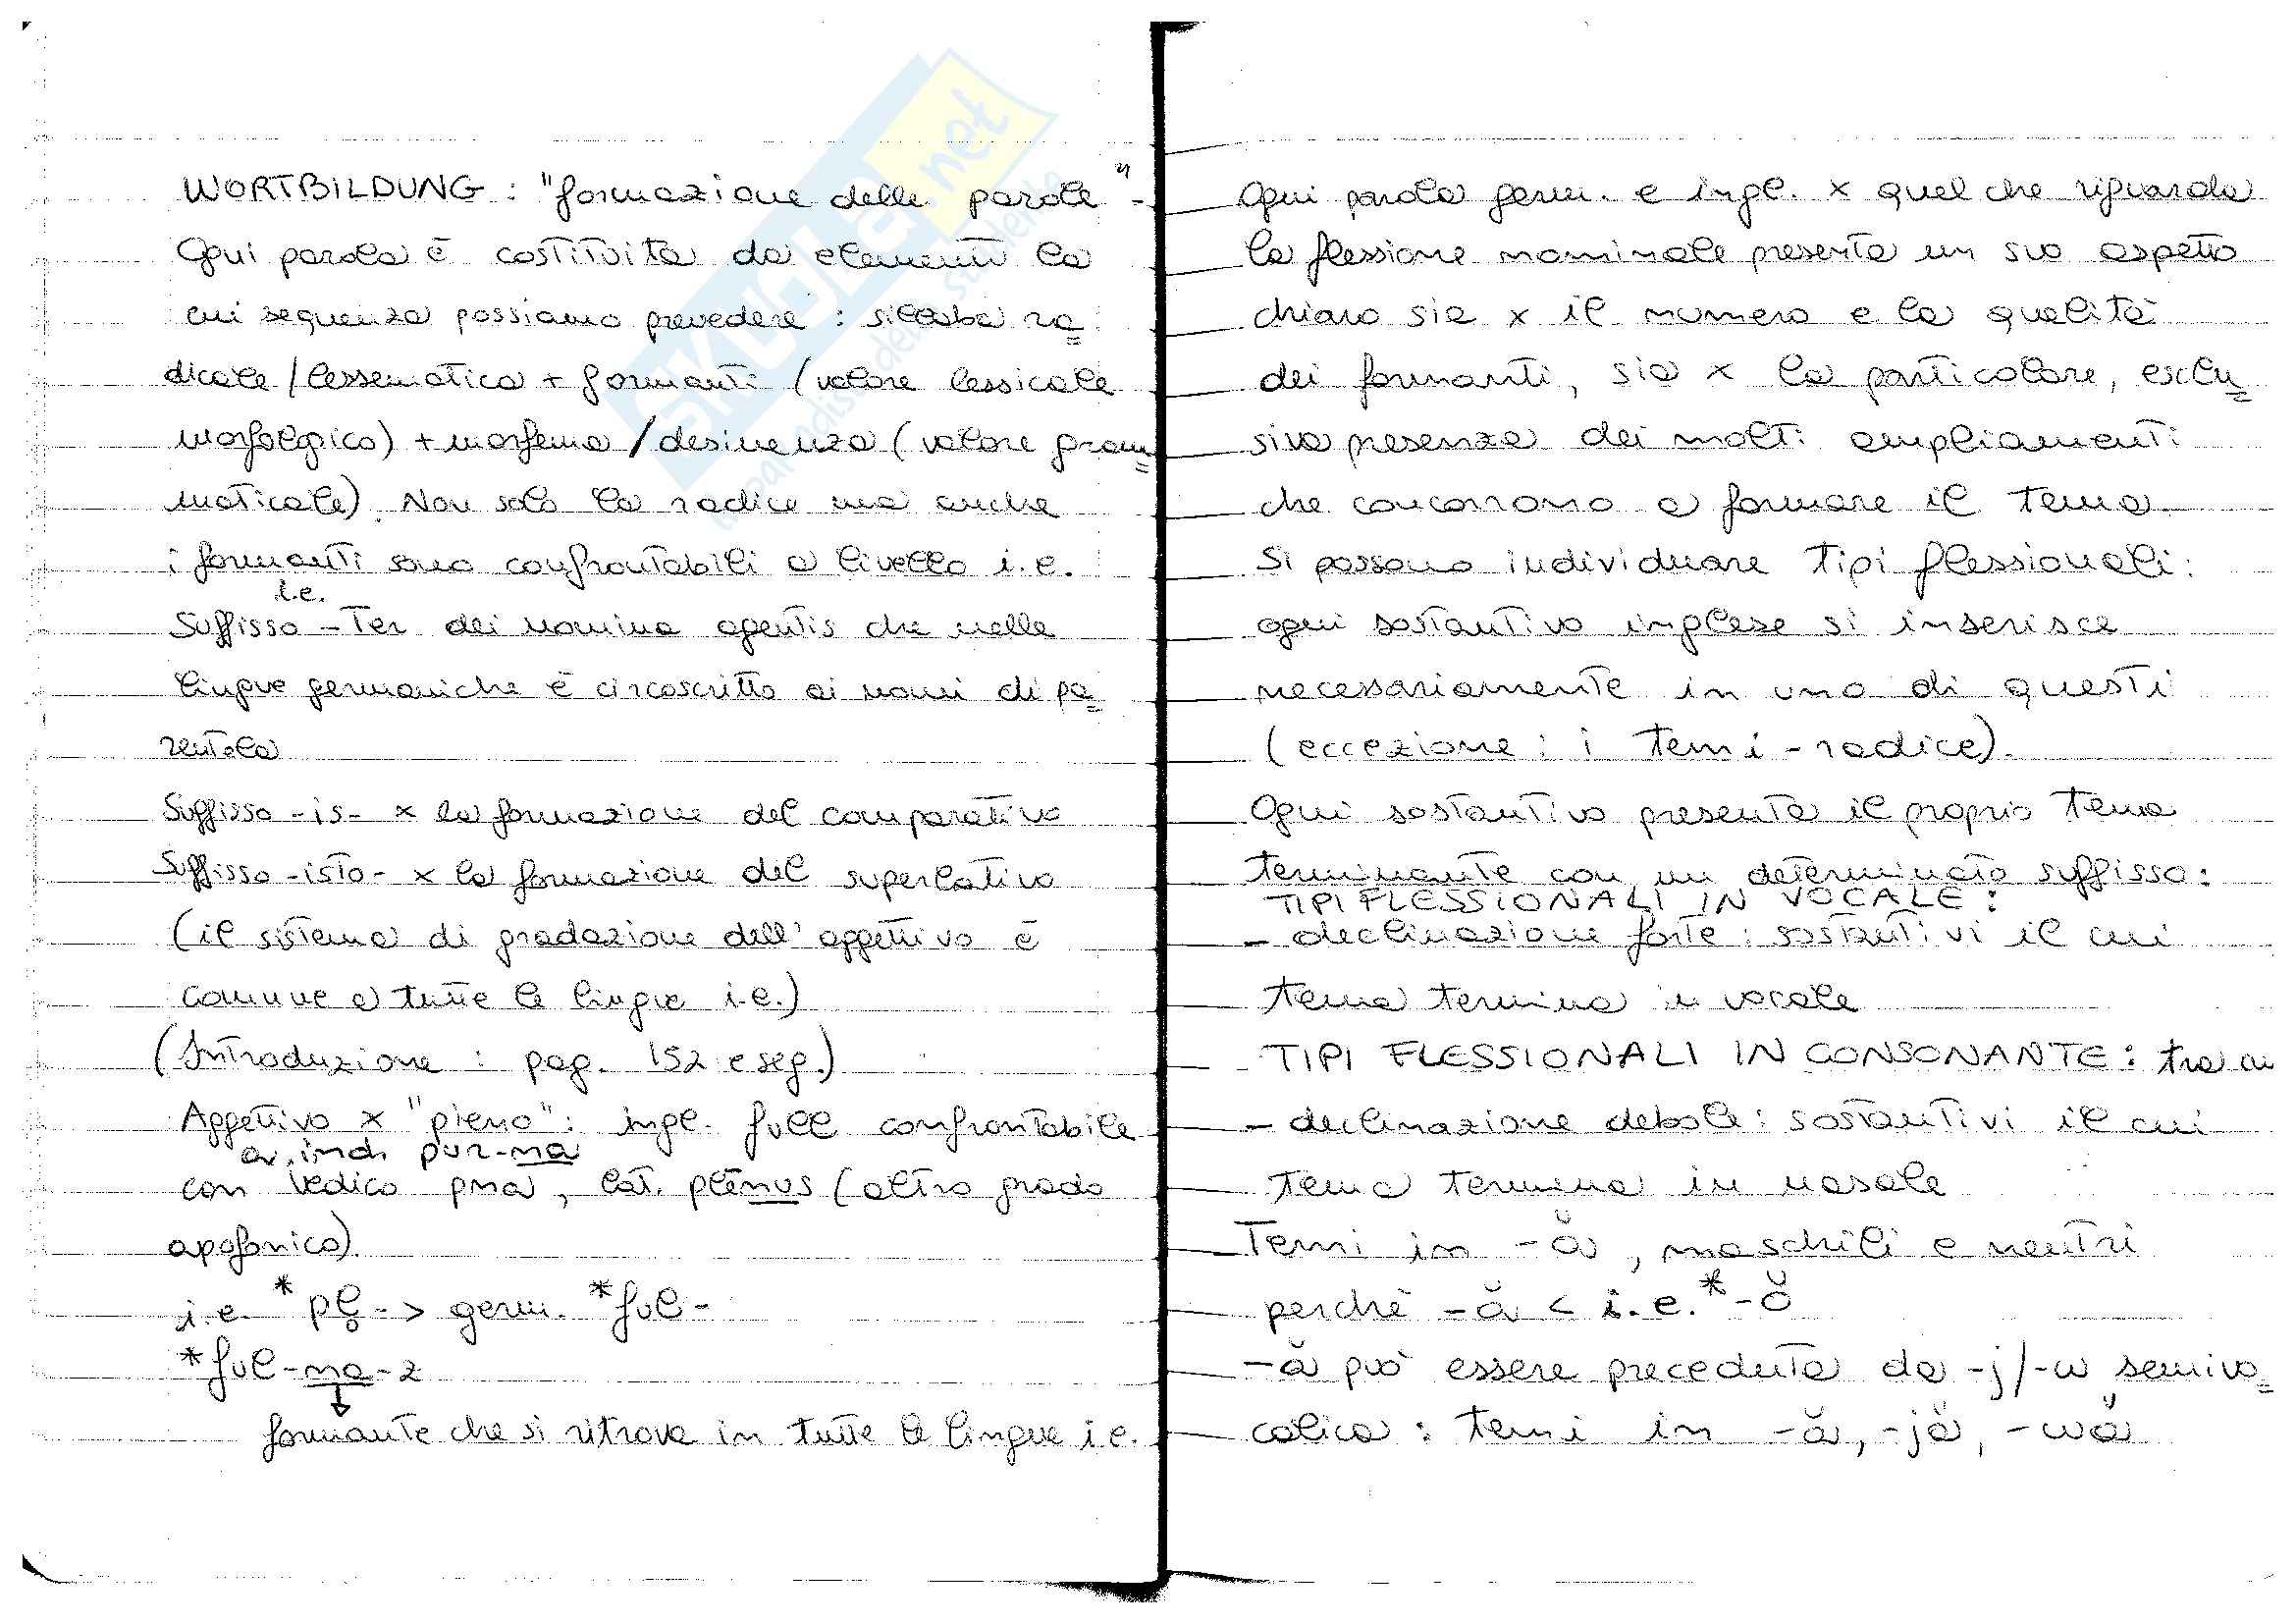 WORTBILDUNG : "formazione delle parole" -
Ogni parola è costituita da elementi la
cui sequenza possiamo prevedere : sillaba ra=
dicale / lessematica + formanti (valore lessicale
morfologico) + morfema / desinenza (valore gram=
maticale). Non solo la radice ma anche
i formanti sono confrontabili a livello i.e.
i.e.
Suffisso -ter dei nomina agentis che nelle
lingue germaniche è circoscritto ai nomi di pa=
rentela
Suffisso -is- x la formazione del comparativo
Suffisso -isto- x la formazione del superlativo
(il sistema di gradazione dell'aggettivo è
comune a tutte le lingue i.e.)
(Introduzione : pag. 152 e seg.)
Aggettivo x "pieno": ingl. full confrontabile
a. ind. pur-na
con vedico pna, lat. plēnus (altro grado
apofonico).
i.e. *pl̥- > germ. *ful-
*ful-na-z
formante che si ritrova in tutte le lingue i.e.
Ogni parola germ. e ingl. x quel che riguarda
la flessione nominale presenta un suo aspetto
chiaro sia x il numero e la qualità
dei formanti, sia x la particolare, esclu=
siva presenza dei molti ampliamenti
che concorrono a formare il tema.
Si possono individuare tipi flessionali:
ogni sostantivo inglese si inserisce
necessariamente in uno di questi
(eccezione: i temi-radice).
Ogni sostantivo presenta il proprio tema
terminante con un determinato suffisso:
TIPI FLESSIONALI IN VOCALE :
- declinazione forte : sostantivi il cui
tema termina in vocale
- TIPI FLESSIONALI IN CONSONANTE : tra cui
- declinazione debole : sostantivi il cui
tema termina in nasale
Temi in -ă, maschili e neutri
perchè -ă < i.e. *-ŏ
-ă può essere preceduta da -j/-w semivo=
calica : temi in -ă, -jă, -wă
skuola.net
il paradiso dello studente